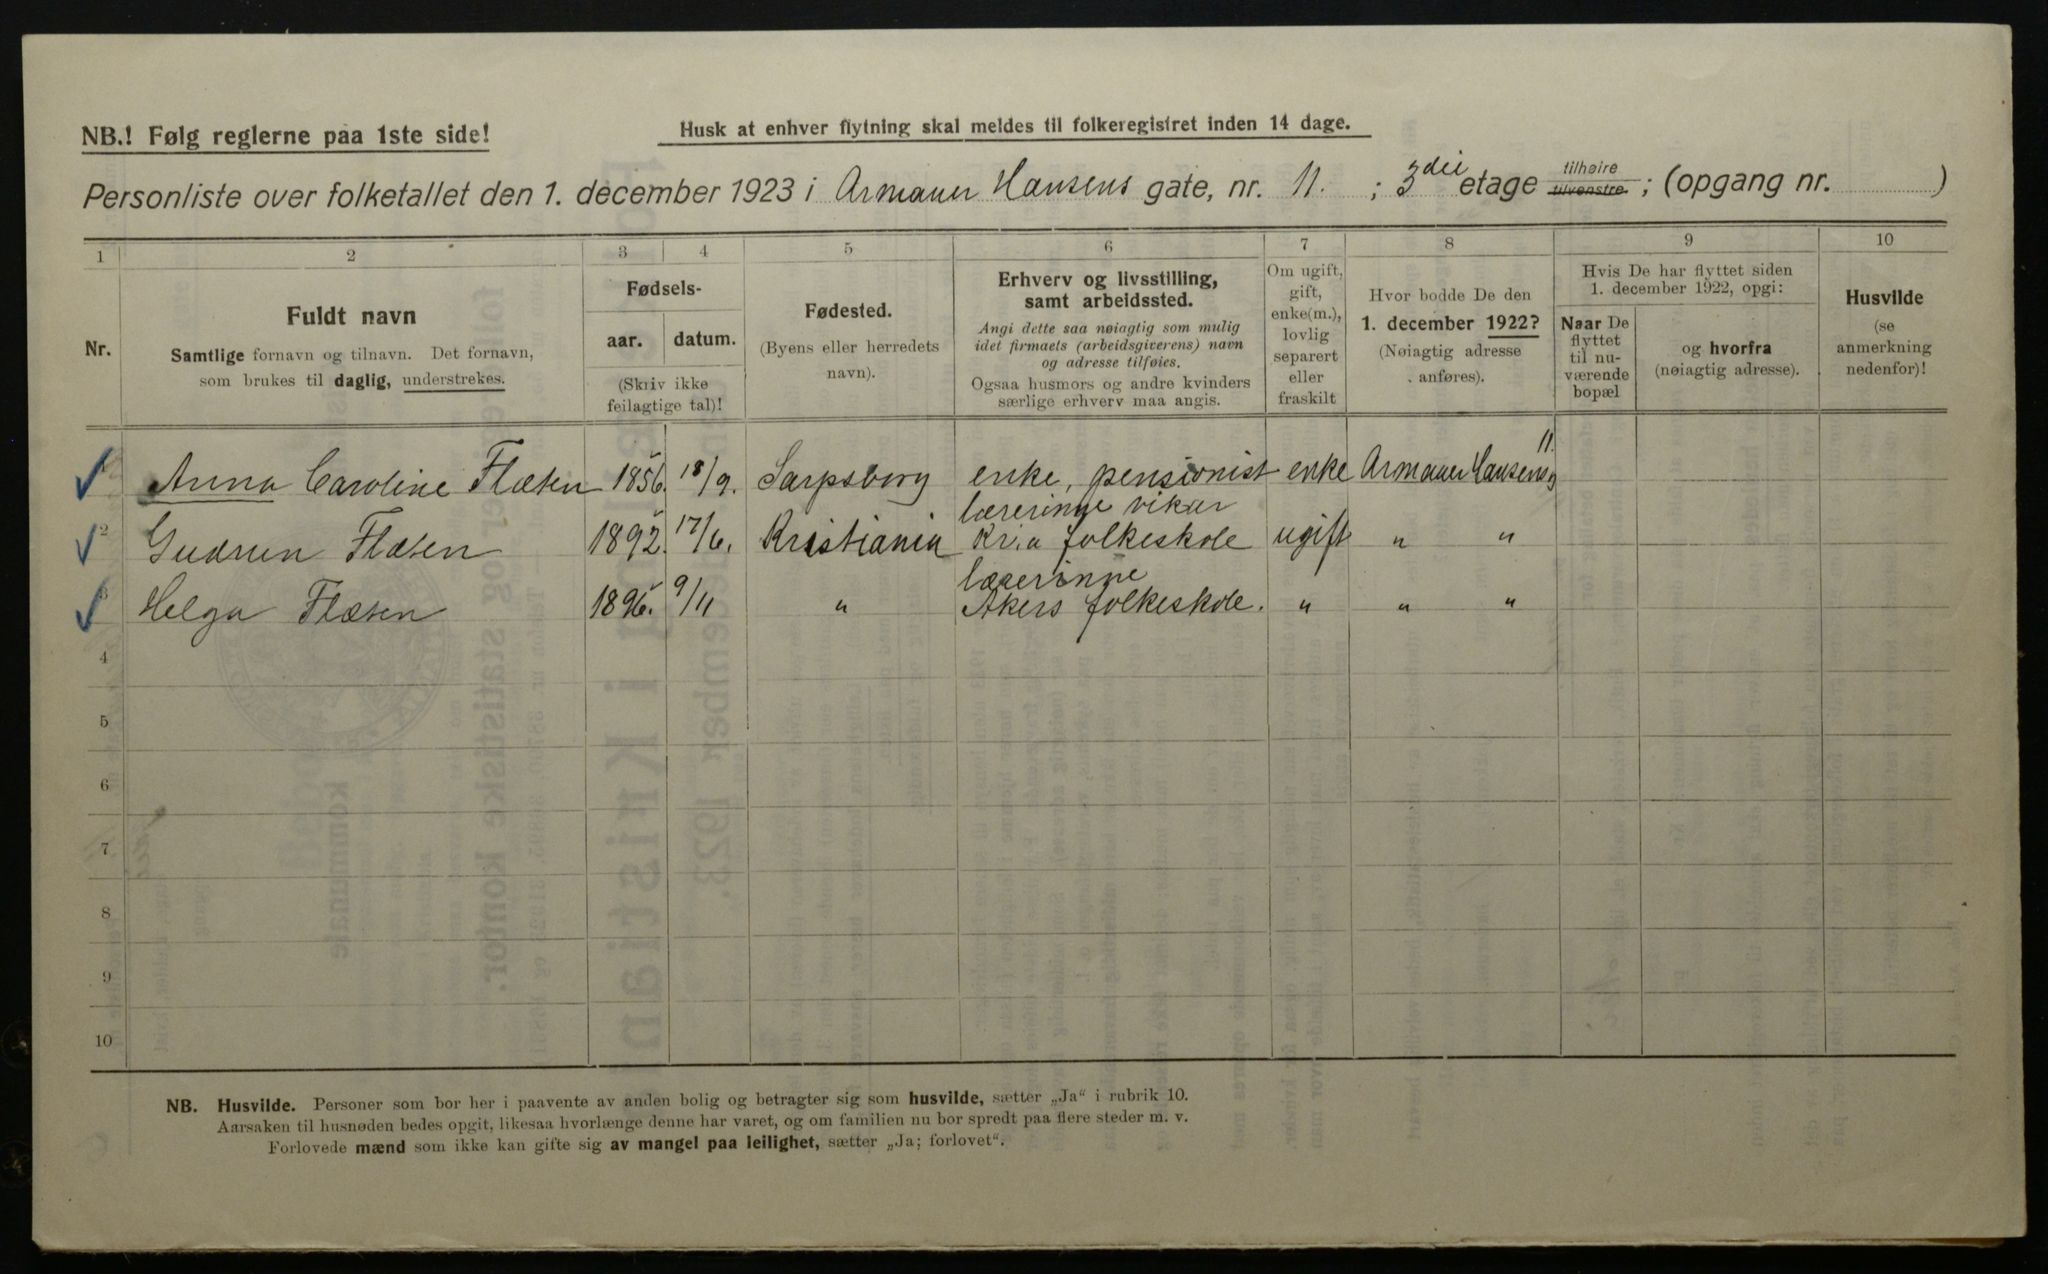 NB.! Følg reglerne paa 1ste side!
Husk at enhver flytning skal meldes til folkeregistret inden 14 dage.
Personliste over folketallet den 1. december 1923 i Armauer Hansens gate, nr. 11. ; 3die etage tilhøire tilvenstre ; (opgang nr. )
1 2 3 4 5 6 7 8 9 10
Nr.
Fuldt navn
Samtlige fornavn og tilnavn. Det fornavn,
som brukes til daglig, understrekes.
Fødsels-
aar. datum.
(Skriv ikke
feilagtige tal)!
Fødested.
(Byens eller herredets
navn).
Erhverv og livsstilling,
samt arbeidssted.
Angi dette saa nøiagtig som mulig
idet firmaets (arbeidsgiverens) navn
og adresse tilføies.
Ogsaa husmors og andre kvinders
særlige erhverv maa angis.
Om ugift,
gift,
enke(m.),
lovlig
separert
eller
fraskilt
Hvor bodde De den
1. december 1922?
(Nøiagtig adresse
anføres).
Hvis De har flyttet siden
1. december 1922, opgi:
Naar De
flyttet
til nu-
værende
bopæl
og hvorfra
(nøiagtig adresse).
Husvilde
(se
anmerkning
nedenfor)!
Anna Caroline Flæten 1856. 18/9. Sarpsborg enke, pensionist enke Armauer Hansensg 11.
2 Gudrun Flæten 1892. 17/6. Kristiania lærerinne vikar Kr.a folkeskole ugift " "
3 Helga Flæten 1896. 9/11 " lærerinne Akers folkeskole. " " "
4
5
6
7
8
9
10
NB. Husvilde. Personer som bor her i paavente av anden bolig og betragter sig som husvilde, sætter „Ja“ i rubrik 10.
Aarsaken til husnøden bedes opgit, likesaa hvorlænge denne har varet, og om familien nu bor spredt paa flere steder m. v.
Forlovede mænd som ikke kan gifte sig av mangel paa leilighet, sætter „Ja; forlovet“.